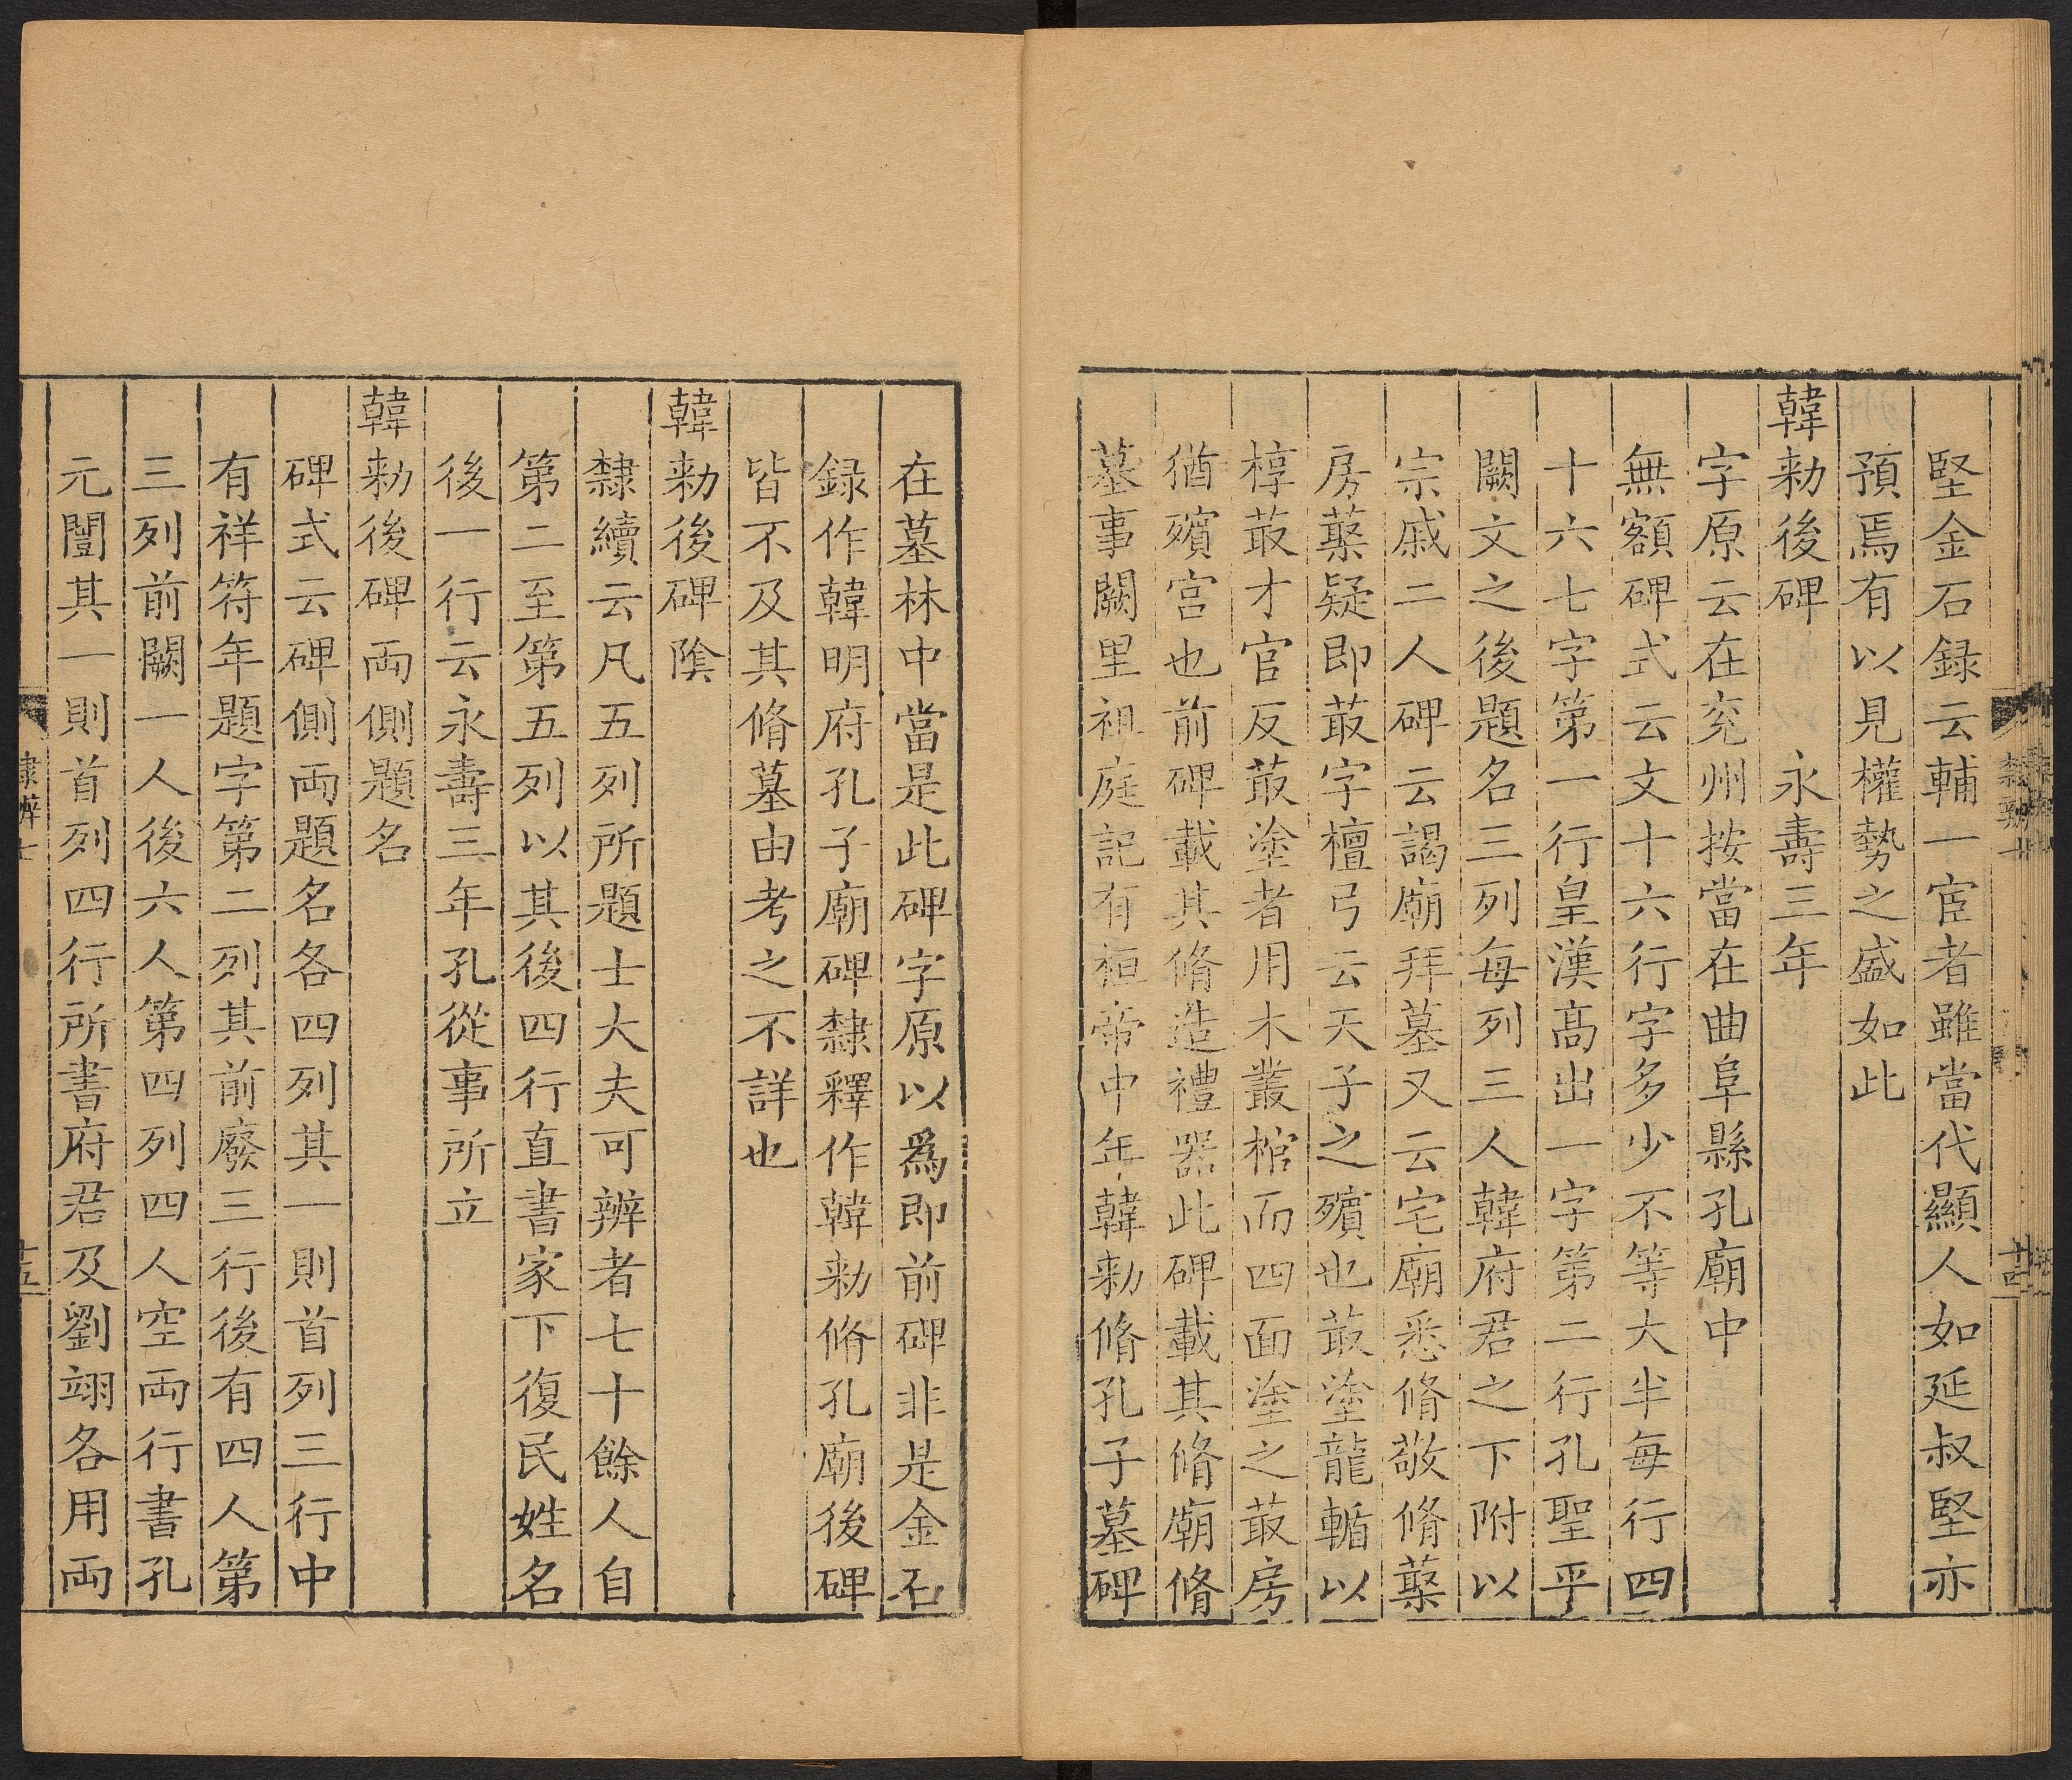 堅金石録云輔一宦者雖當代顯人如延叔堅亦
預焉有以見權勢之盛如此
韓勑後碑 永壽三年
字原云在兖州按當在曲阜縣孔廟中
無額碑式云文十六行字多少不等大半每行四
十六七字第一行皇漢髙出一字第二行孔聖平
闕文之後題名三列每列三人韓府君之下附以
宗戚二人碑云謁廟拜墓又云宅廟悉脩敬脩蕤
房蕤疑即菆字檀弓云天子之殯也菆塗龍輴以
椁菆才官反菆塗者用木叢棺而四面塗之菆房
猶殯宮也前碑載其脩造禮器此碑載其脩廟脩
墓事闕里祖庭記有桓帝中年韓勑脩孔子墓碑
隸辨七
十四
在墓林中當是此碑字原以爲即前碑非是金石
録作韓明府孔子廟碑隸釋作韓勑脩孔廟後碑
皆不及其脩墓由考之不詳也
韓勑後碑隂
隸續云凡五列所題士大夫可辨者七十餘人自
第二至第五列以其後四行直書家下復民姓名
後一行云永壽三年孔從事所立
韓勑後碑両側題名
碑式云碑側両題名各四列其一則首列三行中
有祥符年題字第二列其前廢三行後有四人第
三列前闕一人後六人第四列四人空両行書孔
元闓其一則首列四行所書府君及劉翊各用両
隸辨七
十五